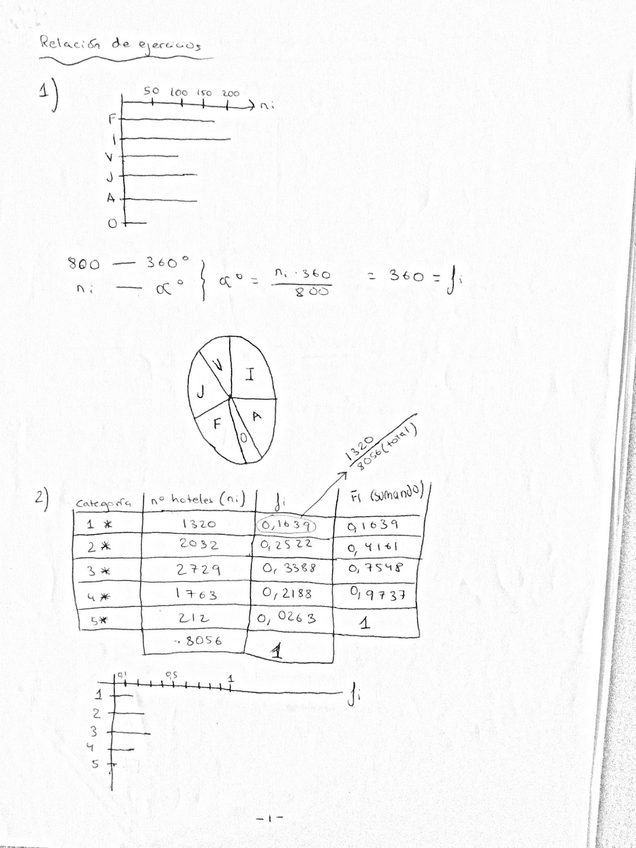 Relación de ejercicios
1)
50 100 150 200
ni
F
I
V
J
A
O
800 — 360°
ni — α°
} α° = ni · 360 / 800 = 360 = fi
V I
J A
F O
1320
8056 (total)
2)
Categoría nº hoteles (ni) fi Fi (sumando)
1 * 1320 0,1639 0,1639
2 * 2032 0,2522 0,4161
3 * 2729 0,3388 0,7548
4 * 1763 0,2188 0,9737
5* 212 0,0263 1
8056 1
0,1 0,5 1
fi
1
2
3
4
5
-1-